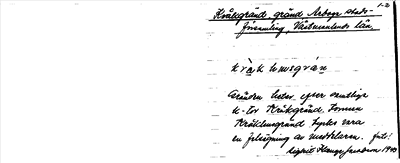 1-2
Kråkgränd, gränd Arboga stads-
församling, Västmanlands län.
kråkhusgrän
Gränden heter, efter
K-tor Kråkgränd. Formen
Kråkhusgränd tycks vara
en felsägning av meddelaren.
1943